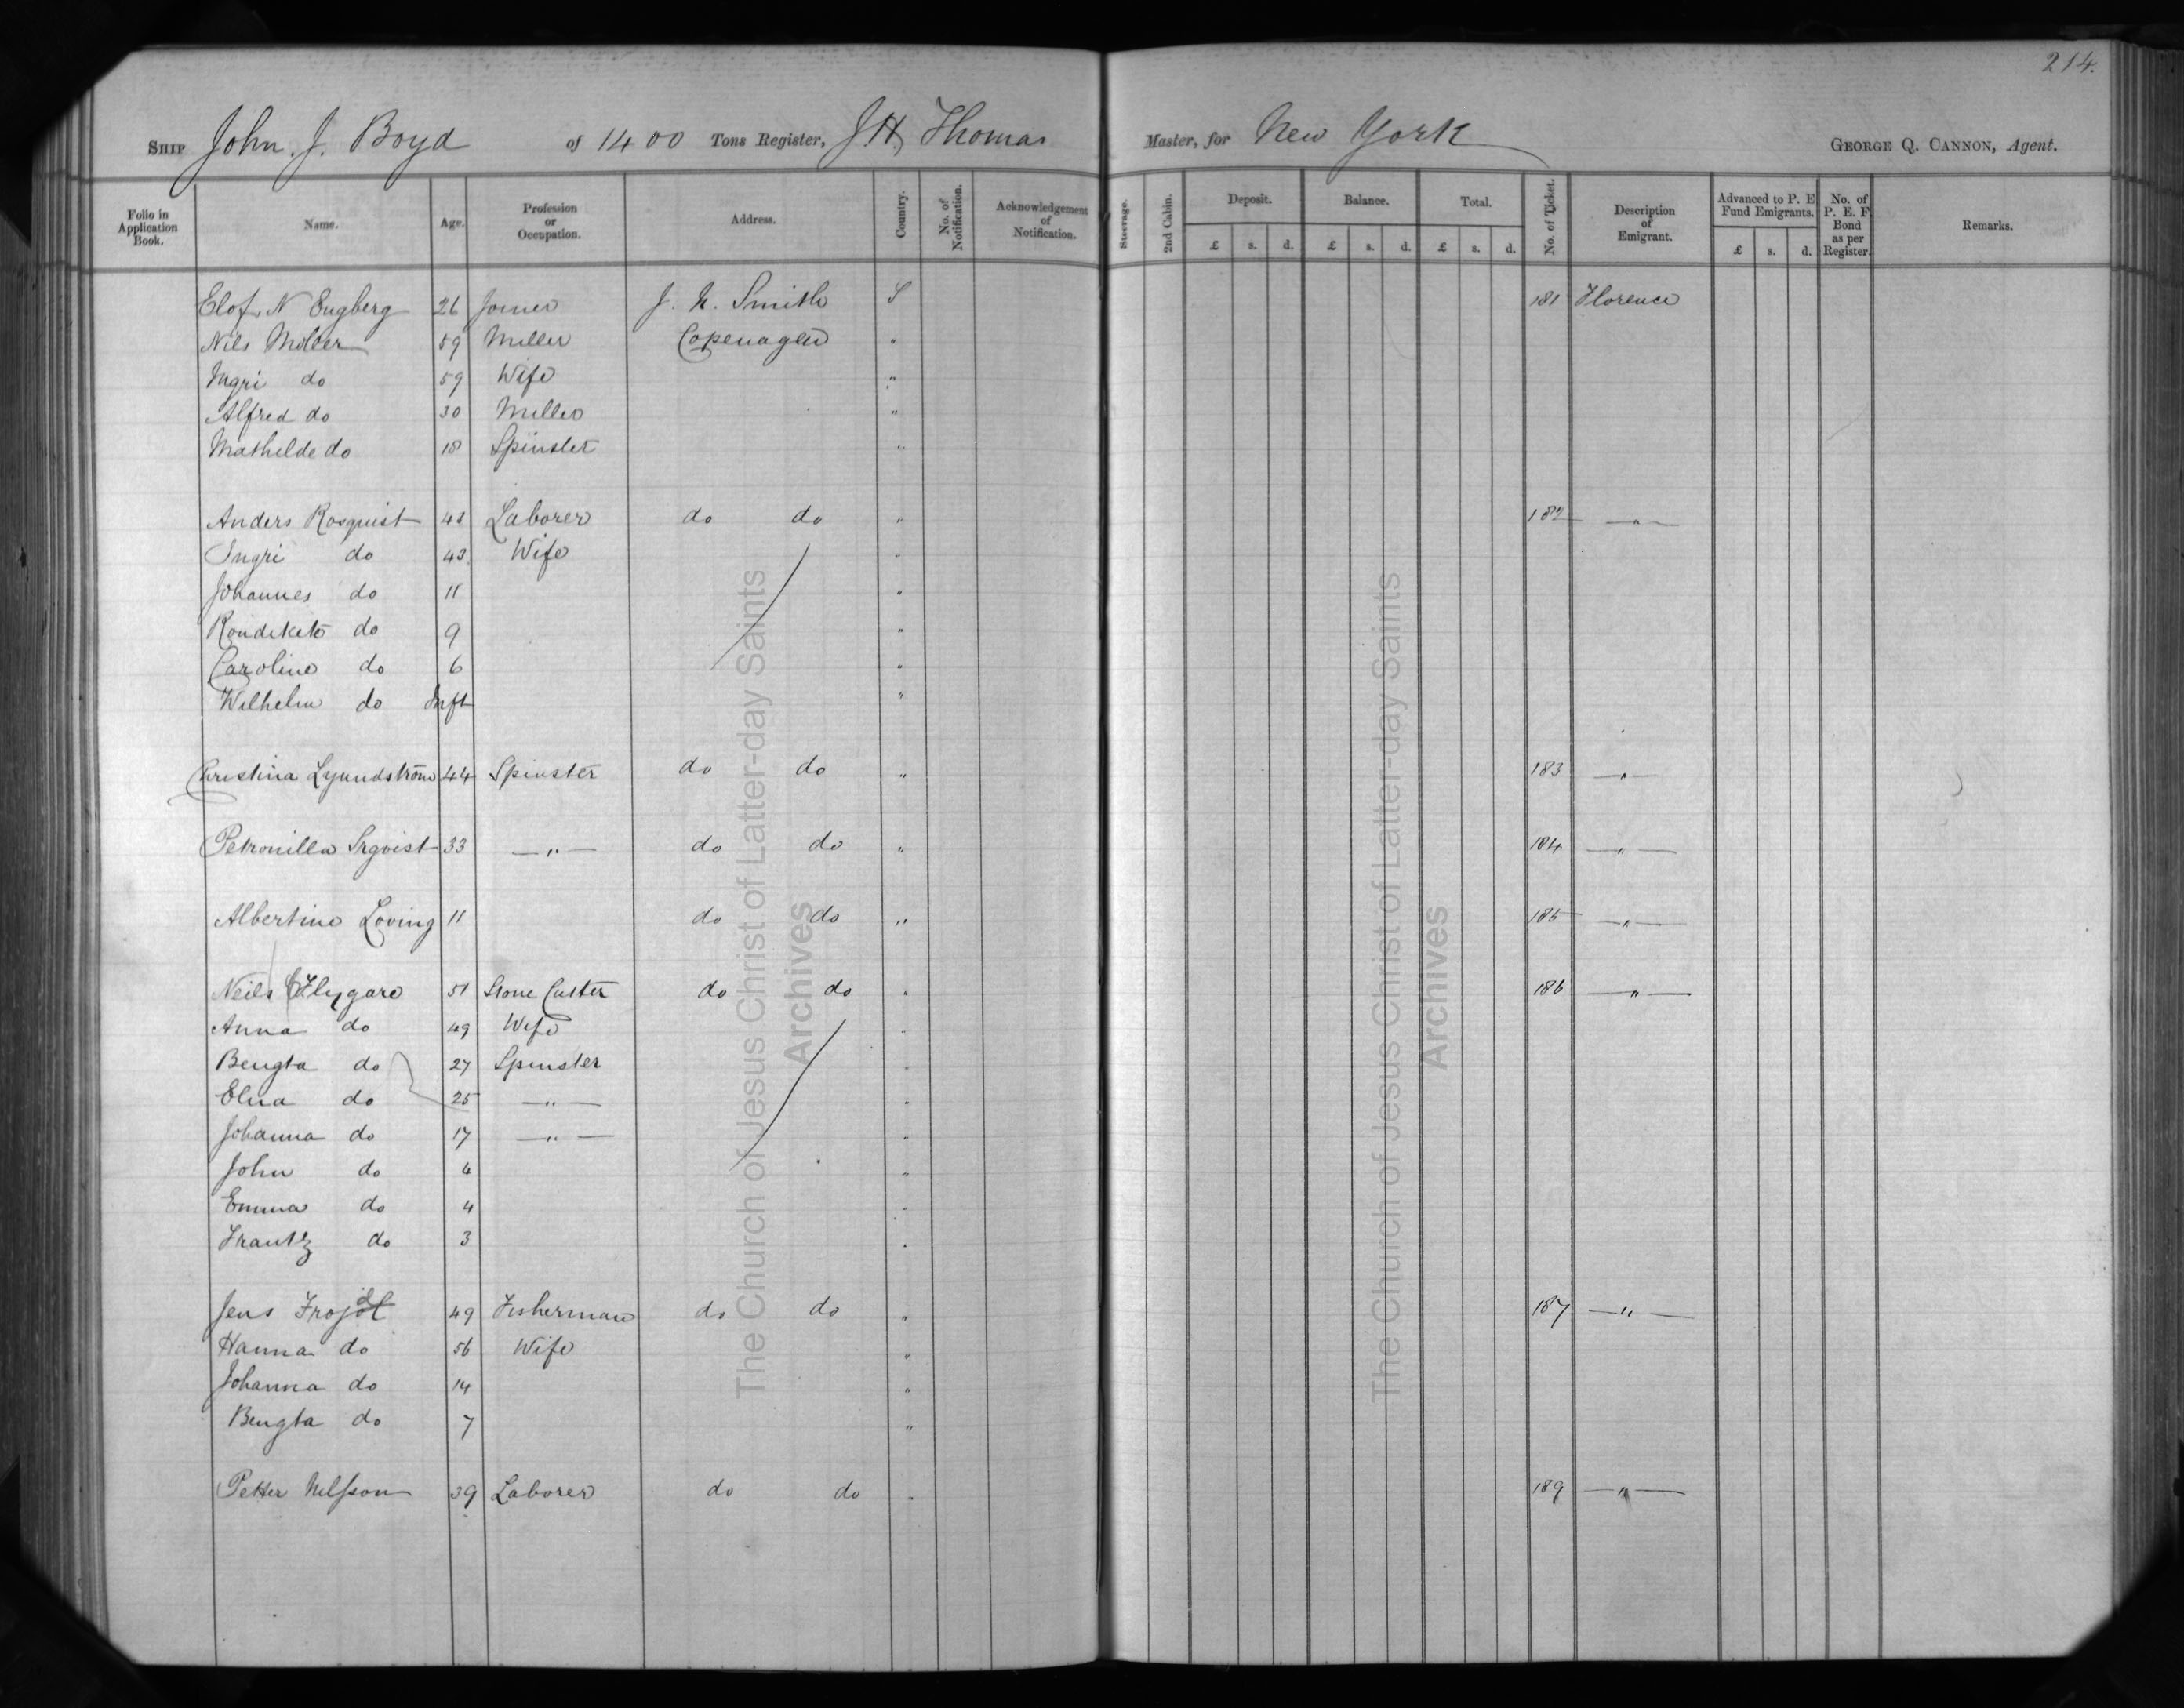 214.
SHIP John. J. Boyd of 1400 Tons Register, J. H. Thomas Master, for New York GEORGE Q. CANNON, Agent.
Folio in Application Book. Name. Age. Profession or Occupation. Address. Country. No. of Notification. Acknowledgement of Notification. Steerage. 2nd Cabin. Deposit. Balance. Total. No. of Ticket. Description of Emigrant. Advanced to P. E Fund Emigrants. No. of P. E. F. Bond as per Register. Remarks.
£ s. d. £ s. d. £ s. d. £ s. d.
Elof. N Engberg 26 Joiner J. N. Smith S 181 Florence
Nils Möller 59 Miller Copenagen "
Ingri do 59 Wife "
Alfred do 30 Miller "
Mathilde do 18 Spinster "
Anders Rosquist 42 Laborer do do " 182 — " —
Ingri do 43 Wife "
Johannes do 11 "
do 9 "
Caroline do 6 "
Wilhelm do Inft "
Christina Lynndström 44 Spinster do do " 183 — " —
Petronilla 33 — " — do do " 184 — " —
Albertine Loving 11 do do " 185 — " —
Neils Flygare 51 Stone Cutter do do " 186 — " —
Anna do 49 Wife "
Bengta do 27 Spinster "
Elna do 25 — " — "
Johanna do 17 — " — "
John do 6 "
Emma do 4 "
Frantz do 3 "
Jens 49 Fisherman do do " 187 — " —
Hanna do 56 Wife "
Johanna do 14 "
Bengta do 7 "
Petter Nelsson 39 Laborer do do " 189 — " —
The Church of Jesus Christ of Latter-day Saints
Archives
The Church of Jesus Christ of Latter-day Saints
Archives